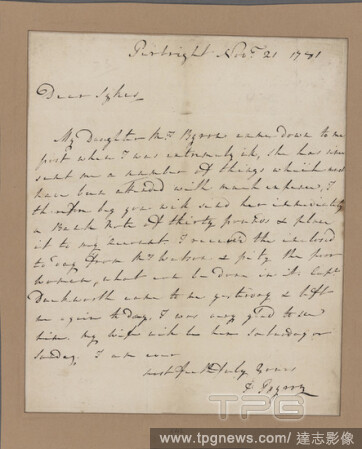 Pirbright Nov.r 21 1781
Dear Sykes
My Daughter Mrs Byron came down to me
post when I was extremely ill, she has since
sent me a number of things which must
have been attended with much expence, I
therefore beg you will send her immediately
a Bank Note of thirty pounds & place
it to my account. I received the inclosed
to day from Mrs & pity the poor
woman, what can be done in it. Capt
Duckworth came to me yesterday & left
me again to day. I was very glad to see
him. My wife will be here Saturday or
Sunday. I am ever
most faithfully yours
J Byron
TPG
www.tpgnews.com/達志影像